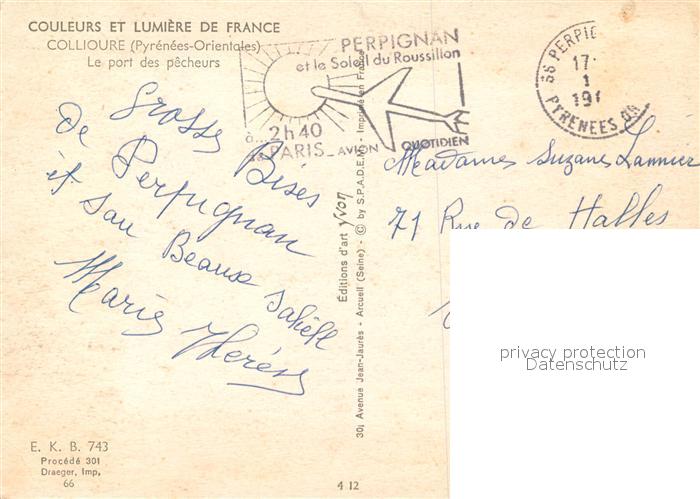 COULEURS ET LUMIÈRE DE FRANCE
COLLIOURE (Pyrénées-Orientales)
Le port des pêcheurs
PERPIGNAN
et le Soleil du Roussillon
à... 2h40
de PARIS_AVION QUOTIDIEN
66 PERPIG
17
1
191
PYRENEES OR
Grosses Bises
de Perpignan
et san Beaux
Marie Thérèse
Madames Suzane Lannier
71 Rue de Halles
Editions d'art yvon
30, Avenue Jean-Jaurès - Arcueil (Seine) - © by S.P.A.D.E.M. - Imprimé en France
privacy protection
Datenschutz
E. K. B. 743
Procédé 301
Draeger, Imp,
66
4 12